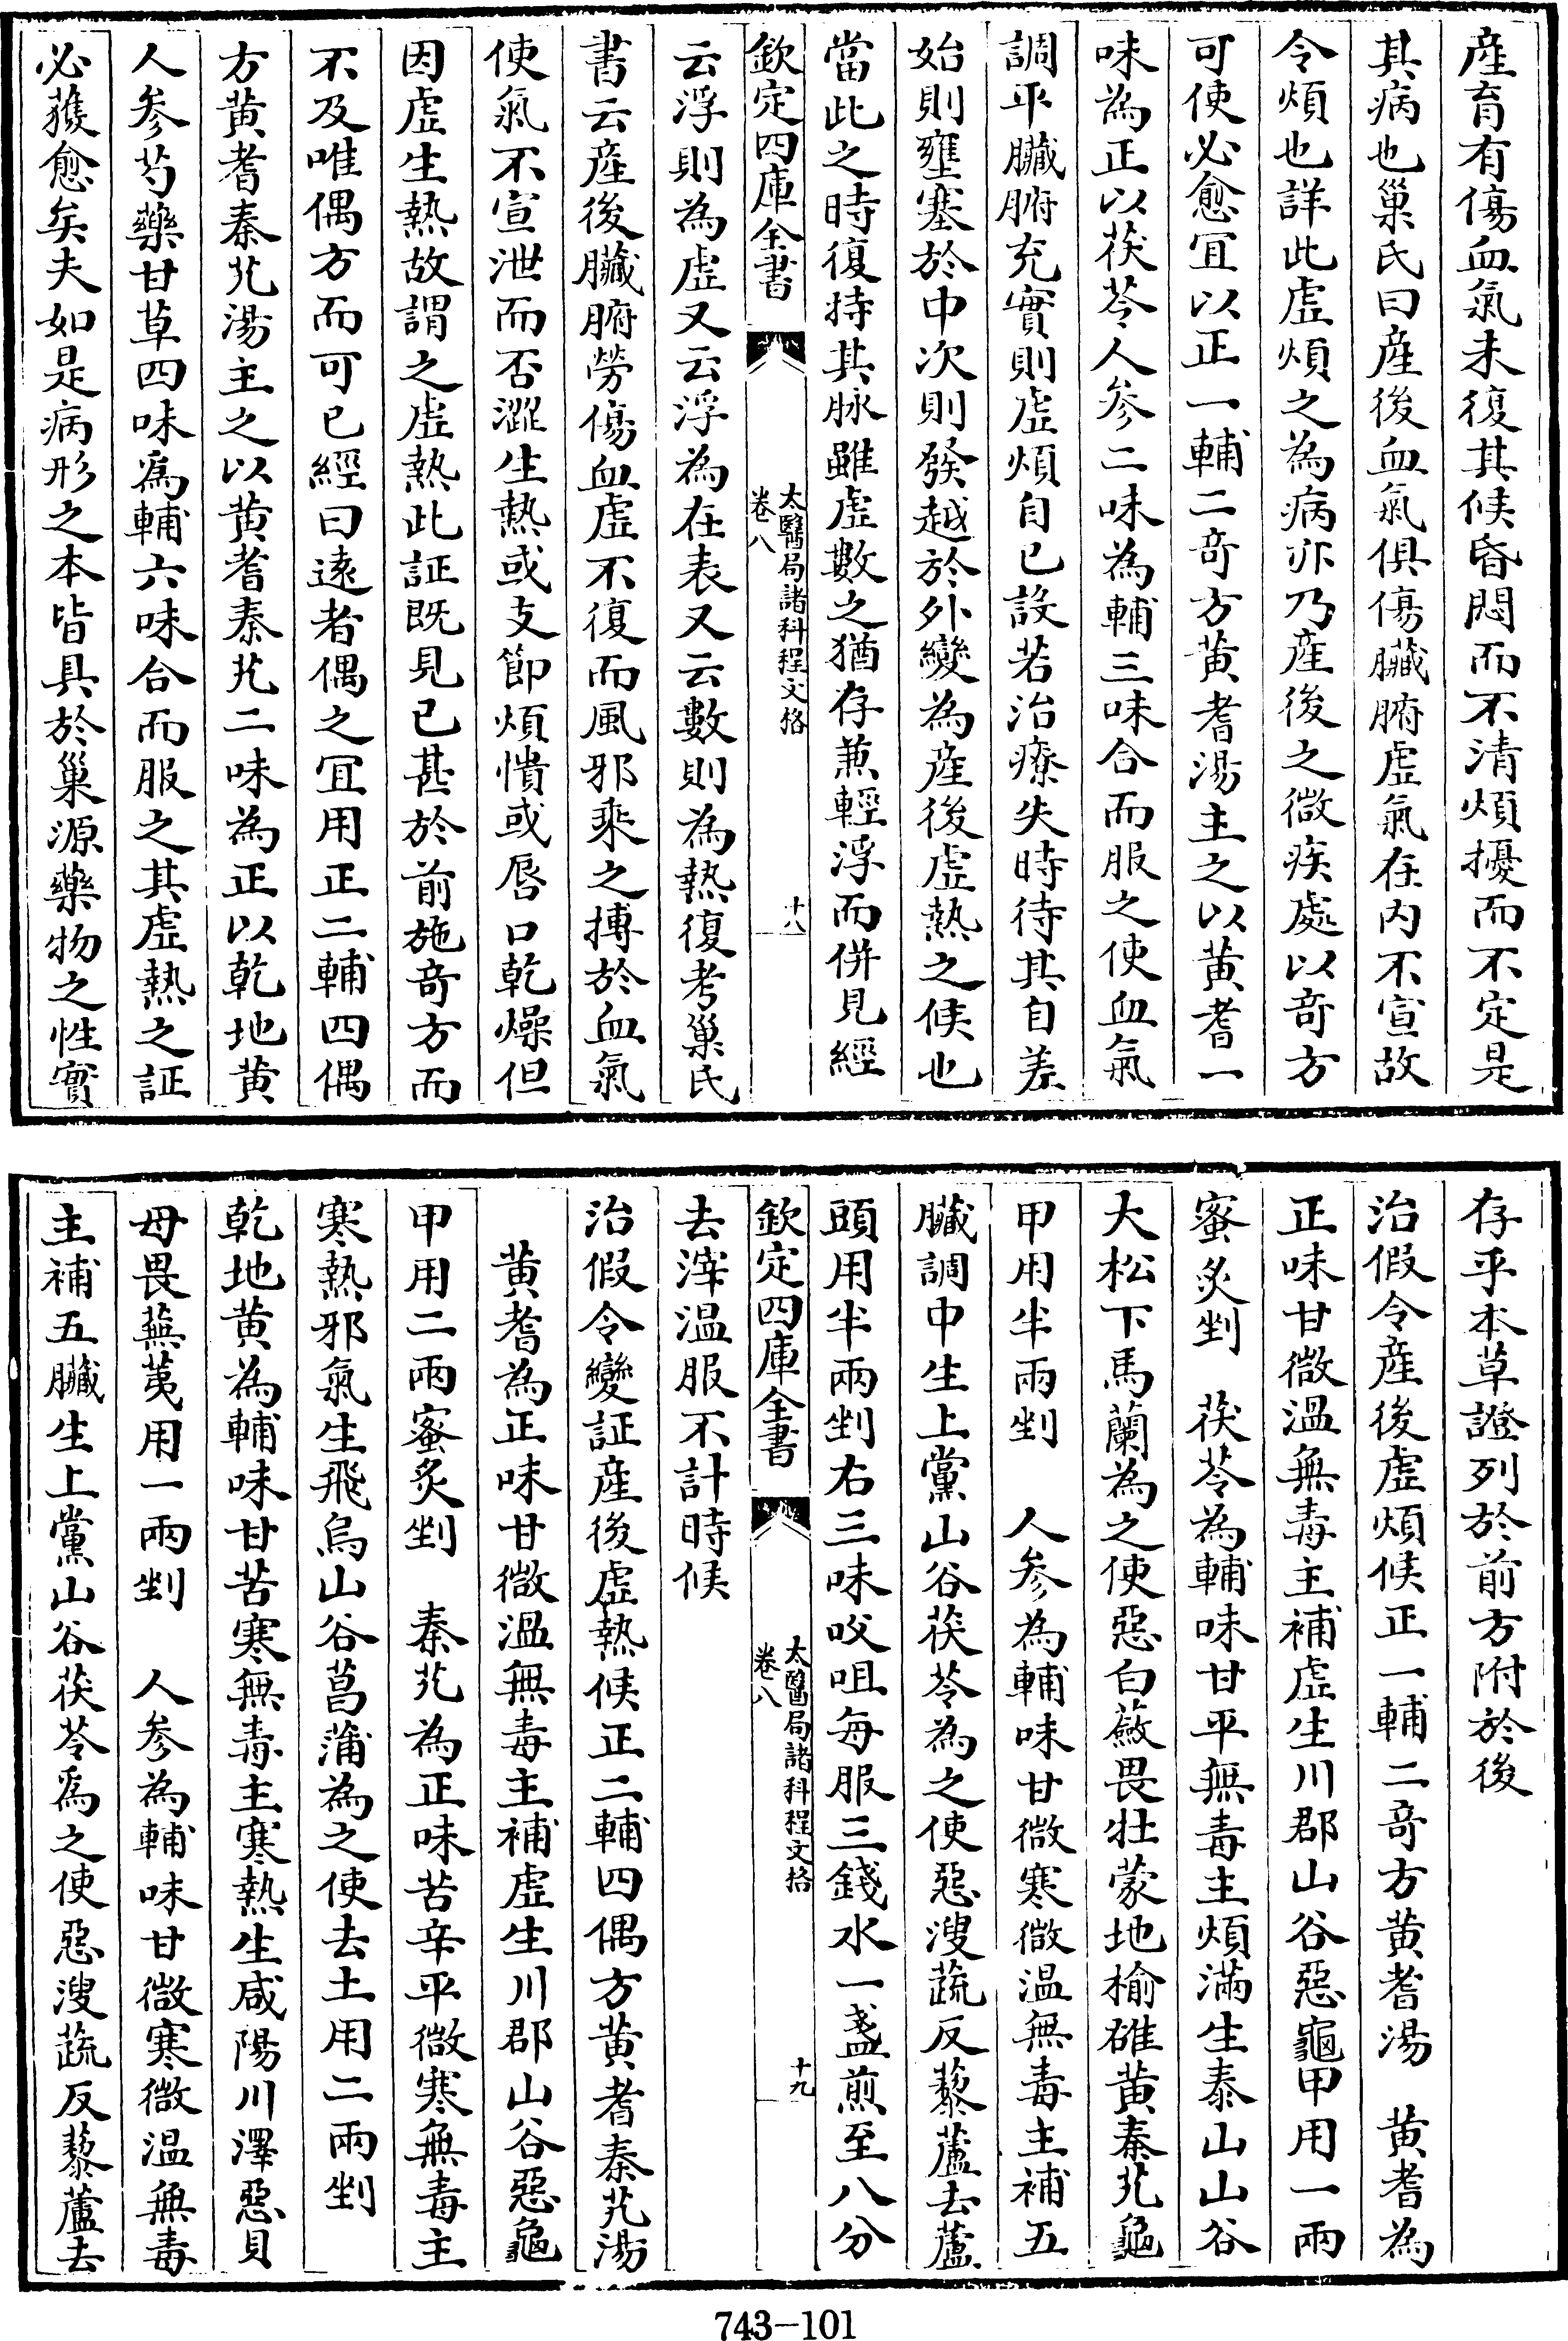 産育有傷血氣未復其候昏悶而不清煩擾而不定是
其病也巢氏曰産後血氣俱傷臟腑虛氣在内不宣故
令煩也詳此虛煩之為病亦乃産後之微疾處以竒方
可使必愈宜以正一輔二竒方黄耆湯主之以黄耆一
味為正以茯苓人參二味為輔三味合而服之使血氣
調平臟腑充實則虛煩自已設若治療失時待其自差
始則壅塞於中次則發越於外變為産後虛熱之候也
當此之時復持其脉雖虛數之猶存兼輕浮而併見經
欽定四庫全書
太醫局諸科程文格
卷八
十八
云浮則為虛又云浮為在表又云數則為熱復考巢氏
書云産後臟腑勞傷血虛不復而風邪乘之搏於血氣
使氣不宣泄而否澀生熱或支節煩憒或唇口乾燥但
因虛生熱故謂之虛熱此証既見已甚於前施竒方而
不及唯偶方而可已經曰逺者偶之宜用正二輔四偶
方黄耆秦艽湯主之以黄耆秦艽二味為正以乾地黄
人參芍藥甘草四味爲輔六味合而服之其虛熱之証
必獲愈矣夫如是病形之本皆具於巢源藥物之性實
存乎本草證列於前方附於後
治假令産後虛煩候正一輔二竒方黄耆湯　黄耆為
正味甘微温無毒主補虛生川郡山谷惡龜甲用一兩
蜜炙剉　茯苓為輔味甘平無毒主煩滿生泰山山谷
大松下馬蘭為之使惡白蘞畏牡蒙地榆雄黄秦艽龜
甲用半兩剉　人參為輔味甘微寒微温無毒主補五
臟調中生上黨山谷茯苓為之使惡溲蔬反藜蘆去蘆
頭用半兩剉右三味㕮咀每服三錢水一盞煎至八分
欽定四庫全書
太醫局諸科程文格
卷八
十九
去滓温服不計時候
治假令變証産後虛熱候正二輔四偶方黄耆秦艽湯
黄耆為正味甘微温無毒主補虛生川郡山谷惡龜
甲用二兩蜜炙剉　秦艽為正味苦辛平微寒無毒主
寒熱邪氣生飛烏山谷菖蒲為之使去土用二兩剉
乾地黄為輔味甘苦寒無毒主寒熱生咸陽川澤惡貝
母畏蕪荑用一兩剉　人參為輔味甘微寒微温無毒
主補五臟生上黨山谷茯苓爲之使惡溲蔬反藜蘆去
743-101